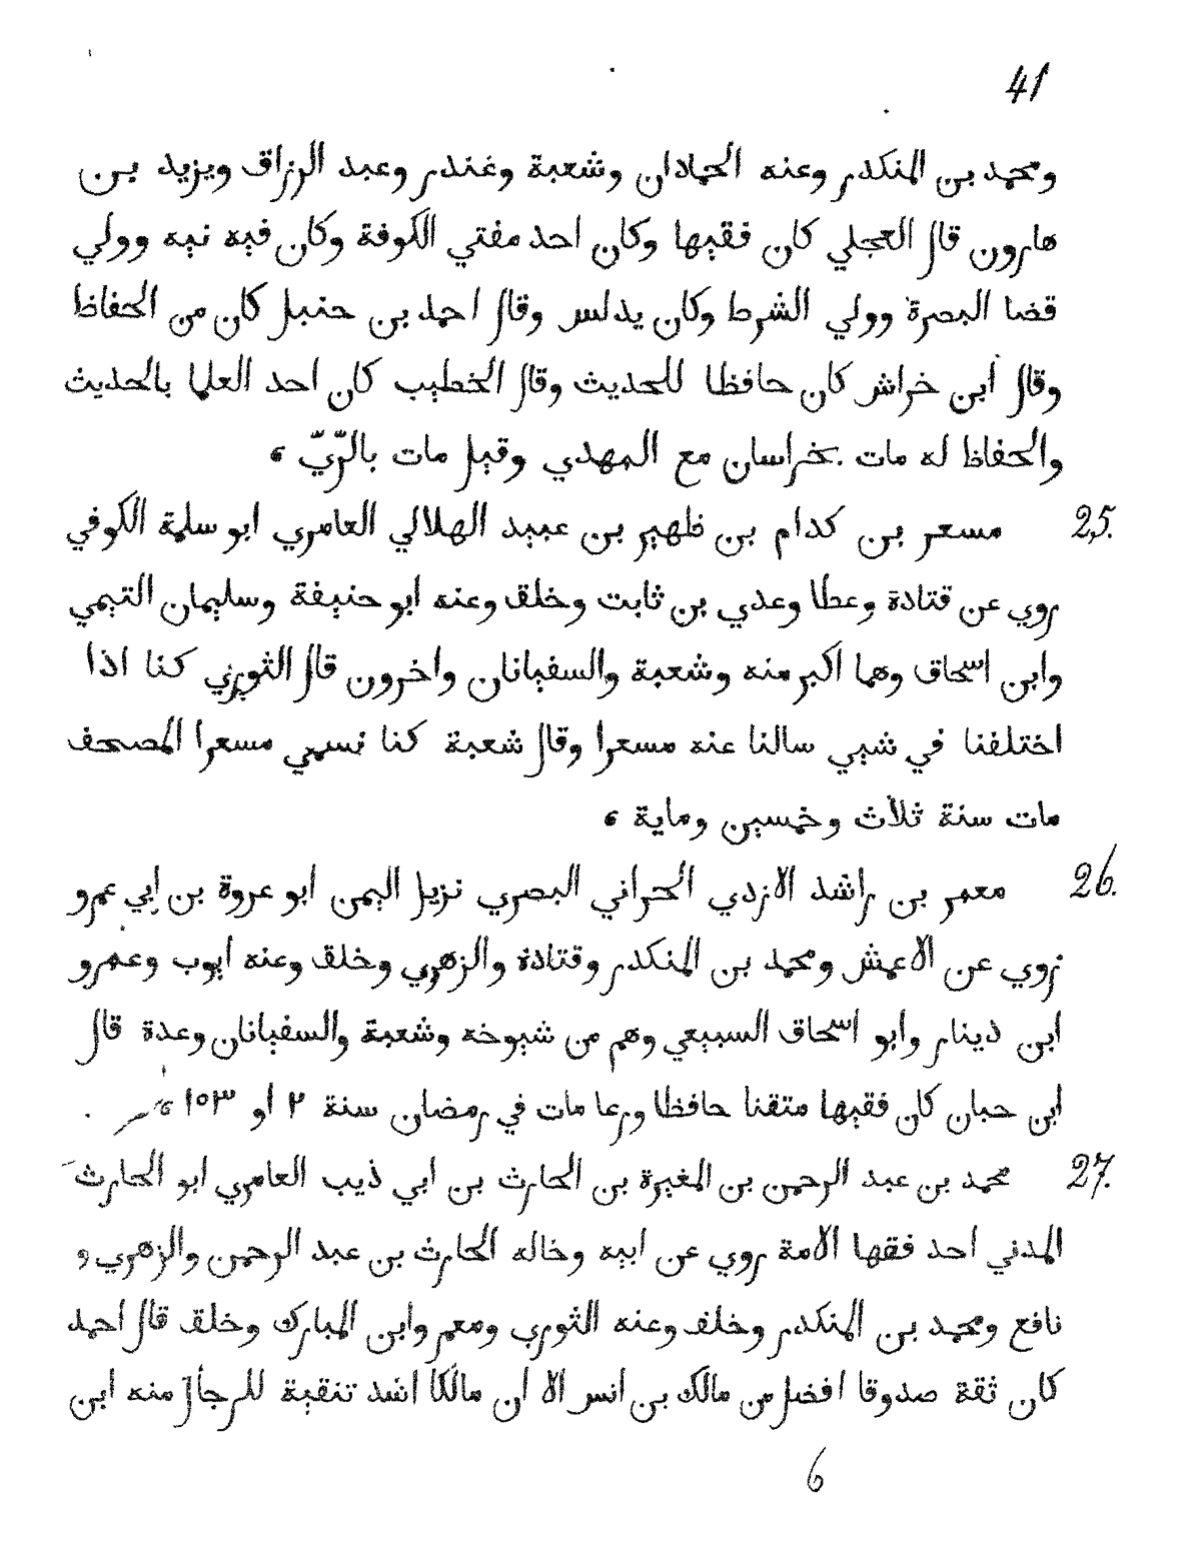 41
ومحمد بن المنكدر وعنه الحمادان وشعبة وغندر وعبد الرزاق ويزيد بن
هارون قال العجلي كان فقيها وكان احد مفتي الكوفة وكان فيه تيه وولي
قضا البصرة وولي الشرط وكان يدلس وقال احمد بن حنبل كان من الحفاظ
وقال ابن خراش كان حافظا للحديث وقال الخطيب كان احد العلما بالحديث
والحفاظ له مات بخراسان مع المهدي وقيل مات بالرّيّ ،
25. مسعر بن كدام بن ظهير بن عبيد الهلالي العامري ابو سلمة الكوفي
روي عن قتادة وعطا وعدي بن ثابت وخلق وعنه ابو حنيفة وسليمان التيمي
وابن اسحاق وهما اكبر منه وشعبة والسفيانان واخرون قال الثوري كنا اذا
اختلفنا في شيي سالنا عنه مسعرا وقال شعبة كنا نسمي مسعرا المصحف
مات سنة ثلاث وخمسين وماية ،
26. معمر بن راشد الازدي الحراني البصري نزيل اليمن ابو عروة بن ابي عمرو
روي عن الاعمش ومحمد بن المنكدر وقتادة والزهري وخلق وعنه ايوب وعمرو
ابن دينار وابو اسحاق السبيعي وهم من شيوخه وشعبة والسفيانان وعدة قال
ابن حبان كان فقيها متقنا حافظا ورعا مات في رمضان سنة ٢ او ١٥٣ ،
27. محمد بن عبد الرحمن بن المغيرة بن الحارث بن ابي ذيب العامري ابو الحارث
المدني احد فقها الامة روي عن ابيه وخاله الحارث بن عبد الرحمن والزهري و
نافع ومحمد بن المنكدر وخلف وعنه الثوري ومعمر وابن المبارك وخلق قال احمد
كان ثقة صدوقا افضل من مالك بن انس الا ان مالكا اشد تنقية للرجال منه ابن
6